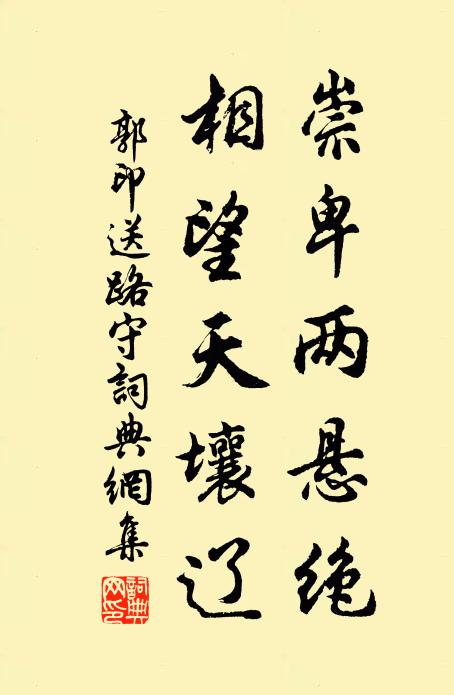 崇卑两悬绝
相望天壤辽
郭印送路守詞典網集
詞典網印